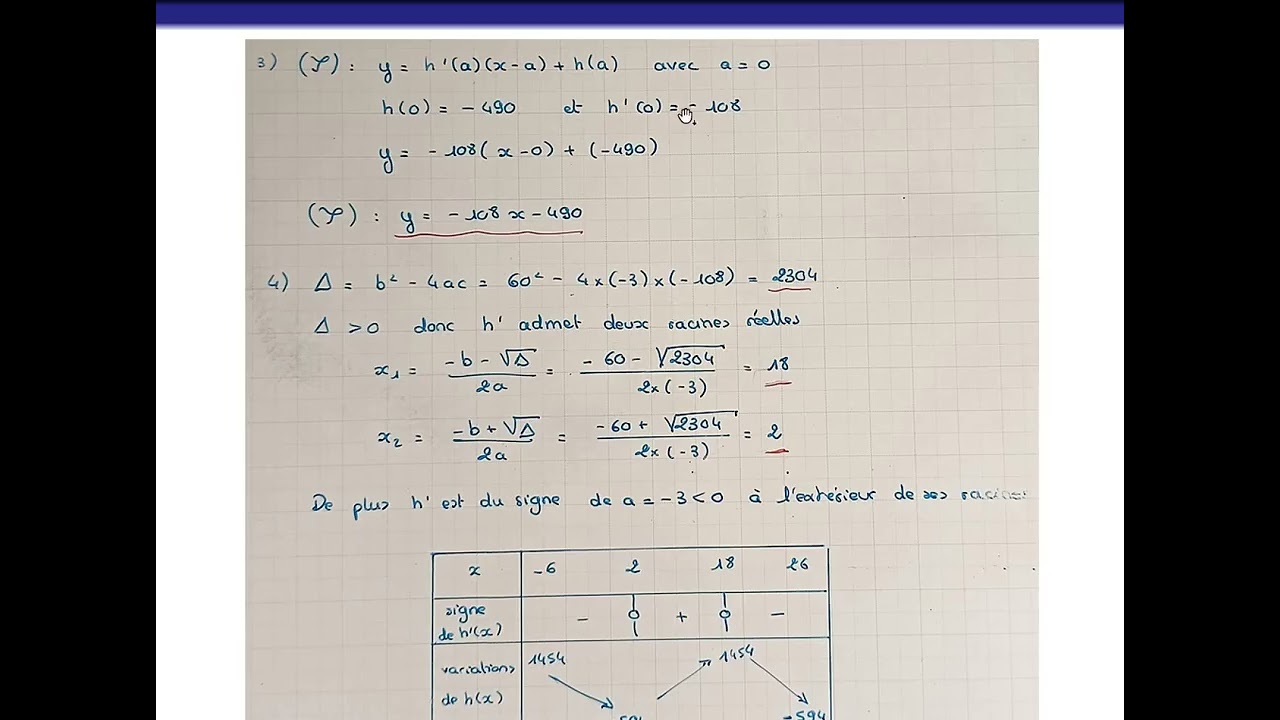 3) (T) : y = h'(a)(x-a) + h(a) avec a = 0
h(0) = -490 et h'(0) = -108
y = -108(x-0) + (-490)
(T) : y = -108x - 490
4) Δ = b² - 4ac = 60² - 4×(-3)×(-108) = 2304
Δ > 0 donc h' admet deux racines réelles
x₁ = (-b - √Δ)/(2a) = (-60 - √2304)/(2×(-3)) = 18
x₂ = (-b + √Δ)/(2a) = (-60 + √2304)/(2×(-3)) = 2
De plus h' est du signe de a = -3 < 0 à l'extérieur de ses racines
x -6 2 18 26
signe de h'(x) - 0 + 0 -
variations de h(x) 1454 1454
-594